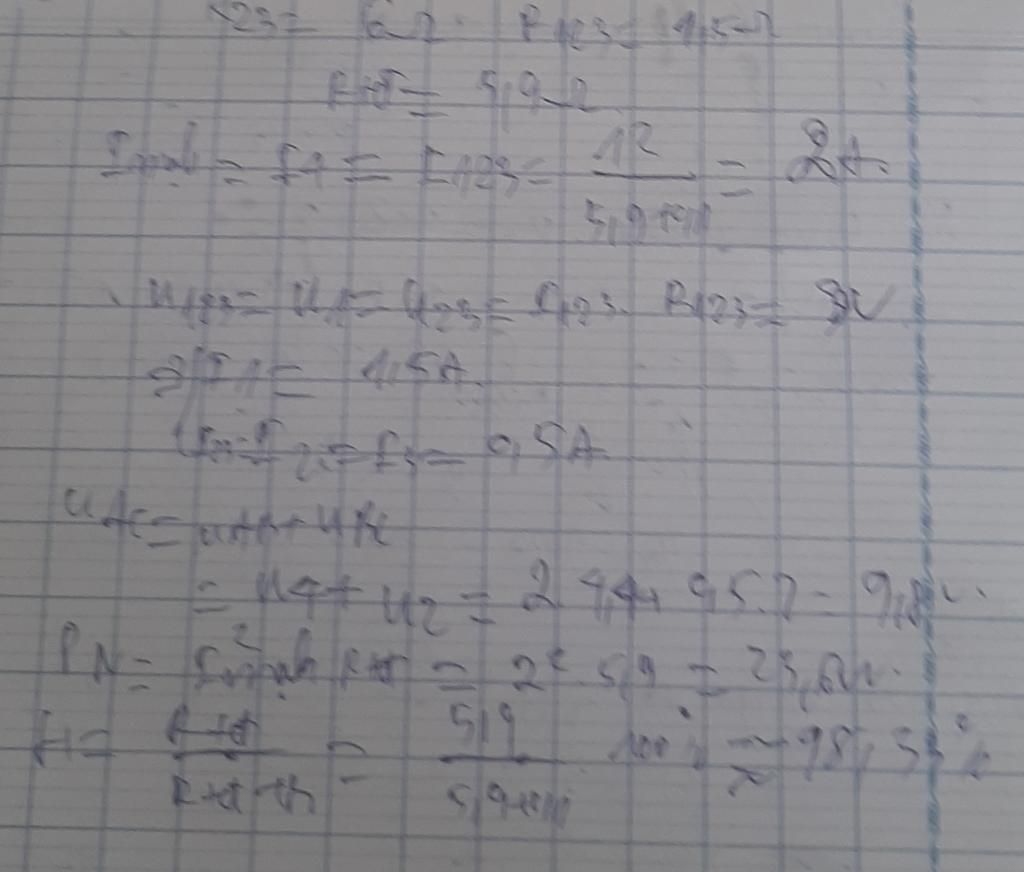 R23= 6Ω. R123= 1,5Ω
Rtđ= 5,9Ω
Imạch = I4 = I123= 12/5,9+0,1 = 2A.
U123= U1= U23= I123. R123= 3V
=> I1= 1,5A
I2= I3= 0,5A
UAC=
= U4+ U2= 2.4,4+ 0,5.2= 9,8V.
PN= I²mạch Rtđ = 2².5,9 = 23,6W.
H= Rtđ/Rtđ+r = 5,9/5,9+0,1 .100% ≈ 98,33%